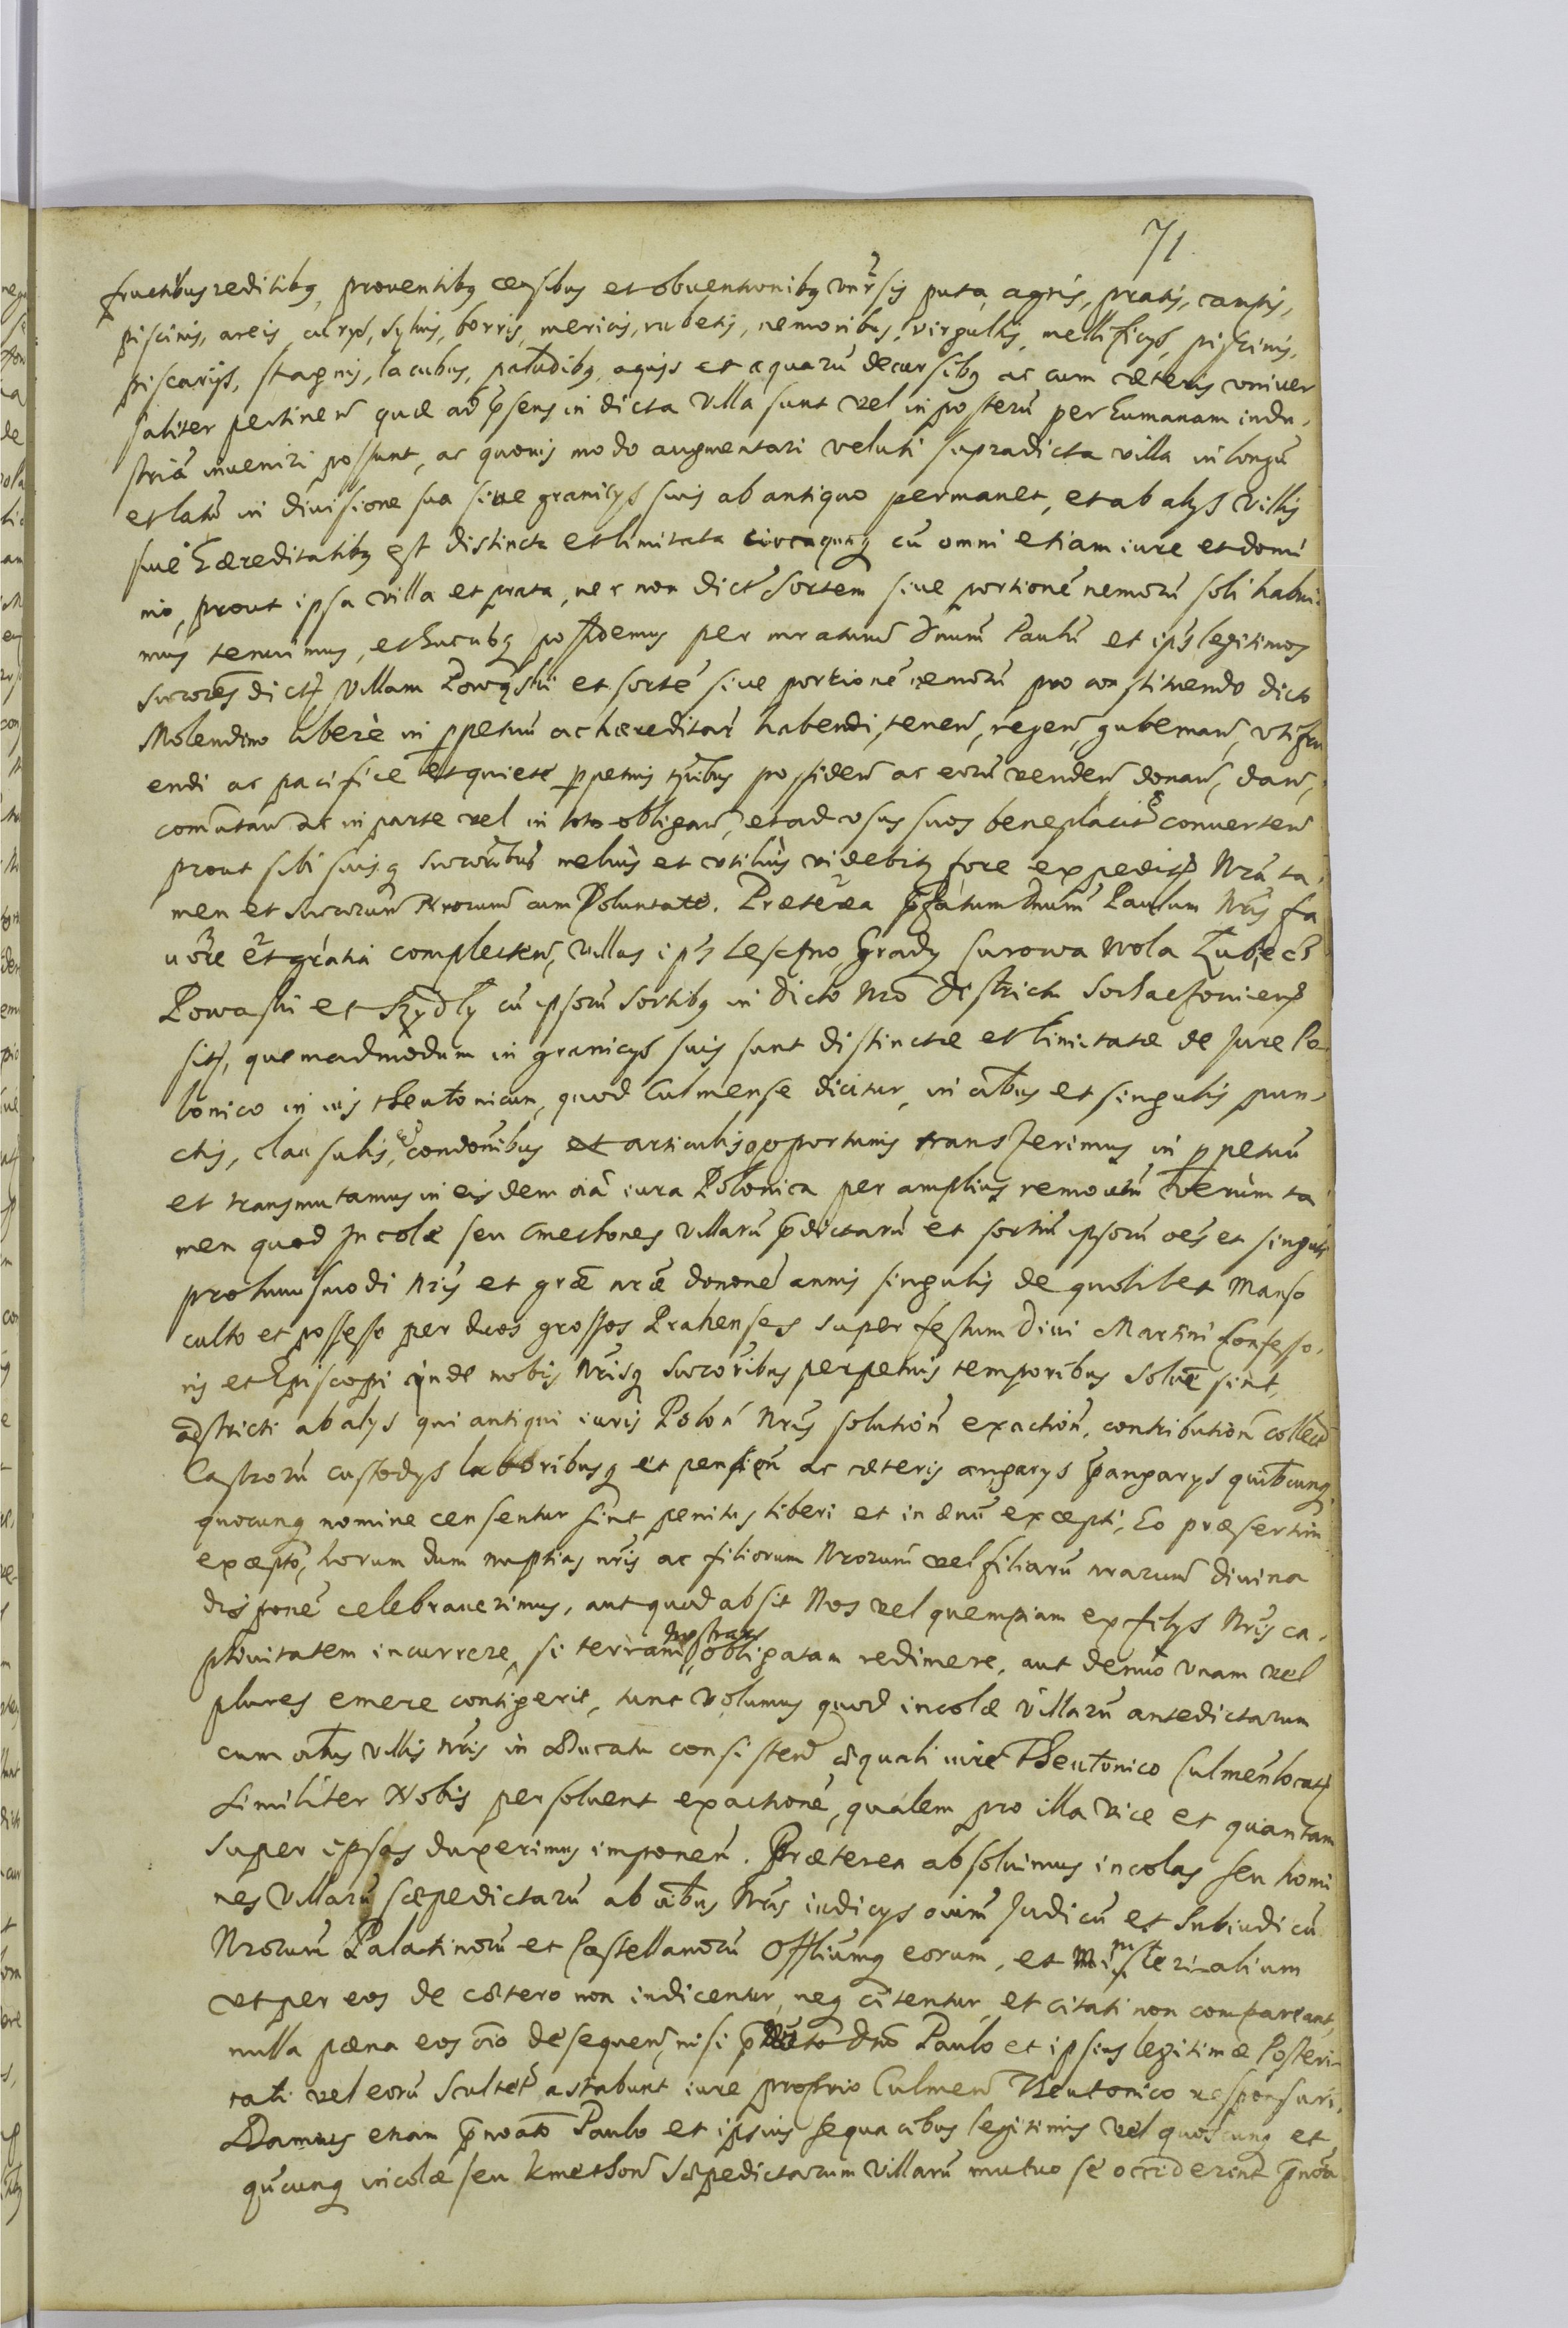 71.
fructibus reditibq, proventibq censibus et obventionibq vnrsis puta, agris, pratis, campis,
piscinis, areis, curys, sylvis, borris, mericis, rubetis, nemoribus, virgultis, mellificys, piscinis,
piscarys, stagnis, lacubus, paludibq, aquis et aquarū decursibq ac cum cæteris vniver
saliter pertineñ quæ ad p̄sens in dicta villa sunt vel in posterū per humanam indu,
striā inveniri possunt, ac quovis modo augmentari veluti supradicta villa in longū
et latū in divisione sua sive granicys suis ab antiquo permanet, et ab alys villis
sive hæreditatibq est distincta et limitata circaquaq cū omni etiam iure et domi
nio, prout ipsa villa et prata, nec non dictā sortem sive portionē nemorū soli habui,
mus tenuimus, et hucusq possidemus per mratum dnum Paulū et ip̄s legitimos
succores dictā villam Powąski et sortē sive portionē nemorū pro constituendo dicto
Molendino liberè in ppetuū ac hæreditariè habendi, teneñ, regeñ, gubernañ, vtifru
endi ac pacificè et quietè ppetuis tp̄ibus possideñ ac eciam vendeñ donañ, dañ,
comutañ ac in parte vel in toto obligañ, et ad vsus suos beneplacitos converteñ
prout sibi suisq succoribus melius et vtilius videbit fore expedire Nrā ta,
men et succorum Nrorum cum voluntate. Præterea p̄fatum dnum Paulum Nris fa
vore et gratiā complecteñ, villas ip̄s Leszno, Grady surowa Wola Łubiec
Powaski et Szydły cū ipsorū sortibq in dicto Nro districtu Sochaczovieñ
sitꝫ, quemadmodum in granicys suis sunt distinctæ et limitatæ de Jure Po
lonico in ius theutonicum, quod Culmense dicitur, in oībus et singulis pun,
ctis, clausulis, condonibus et articulis opportunis transferimus in ppetuū
et transmutamus in eisdem oīa iura Polonica per amplius removeñ Verùm ta
men quod Incolæ seu Cmethones villarū p̄dictarū et sortiū ipsorū oēs et singuli
pro huiusmodi Nris et grāe nrāe donone annis singulis de quolibet Manso
culto et possesso per duos grossos Prahenses super festum Divi Martini Confesso,
ris et Episcopi inde nobis Nrisq succoribus perpetuis temporibus solvē sint,
adstricti ab alys qui antiqui iuris Poloñ Nris solutioñ exactioñ, contributioñ collect
Castrorū custodys laboribusq et pensioñ ac cæteris angarys p̄angarys quibcunq
quocunq nomine censentur sint penitus liberi et in ævū excepti, Eo præsertim
excepto, horum dum nuptias nris ac filiorum Nrorum vel filiarū nrarum divina
dispone celebraverimus, aut quod absit Nos vel quempiam ex filys Nris ca,
ptivitatem incurrere, si terram nostram obligatam redimere, aut denuo vnam vel
plures emere contigerit, tunc volumus quod incolæ villarū antedictarum
cum oībus villis Nris in Ducatu consisteñ æquali iure Theutonico Culmeñ locatꝫ
similiter Nobis persolvent exactionē, qualem pro illa vice et quantam
super ipsos duxerimus imponeñ. Præterea absolvimus incolas seu homi
nes villarū sæpedictarū ab oībus Nris iudicys oīum Judicū et Subiudicū
Nrorum Palatinorū et Castellanorū Offliumq eorum, et Ministerialium
vt per eos de cætero non iudicentur, neq citentur, et citati non compareant,
nulla pœna eos oīo desequeñ, nisi p̄dicto dno Paulo et ipsius legitimæ Posteri
tati vel eorū Scultet astabunt iure proprio Culmeñ Theutonico responsuri.
Damus etiam p̄noato Paulo et ipsius sequacibus legitimis vel quoscunq et
qūcunq incolæ seu kmethoñ sæpedictarum villarū mutuo se occiderint p̄noā